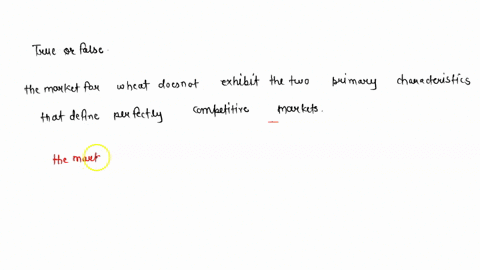 True or false.
the market for wheat doesnot exhibit the two primary characteristics
that define perfectly competitive markets.
the mart